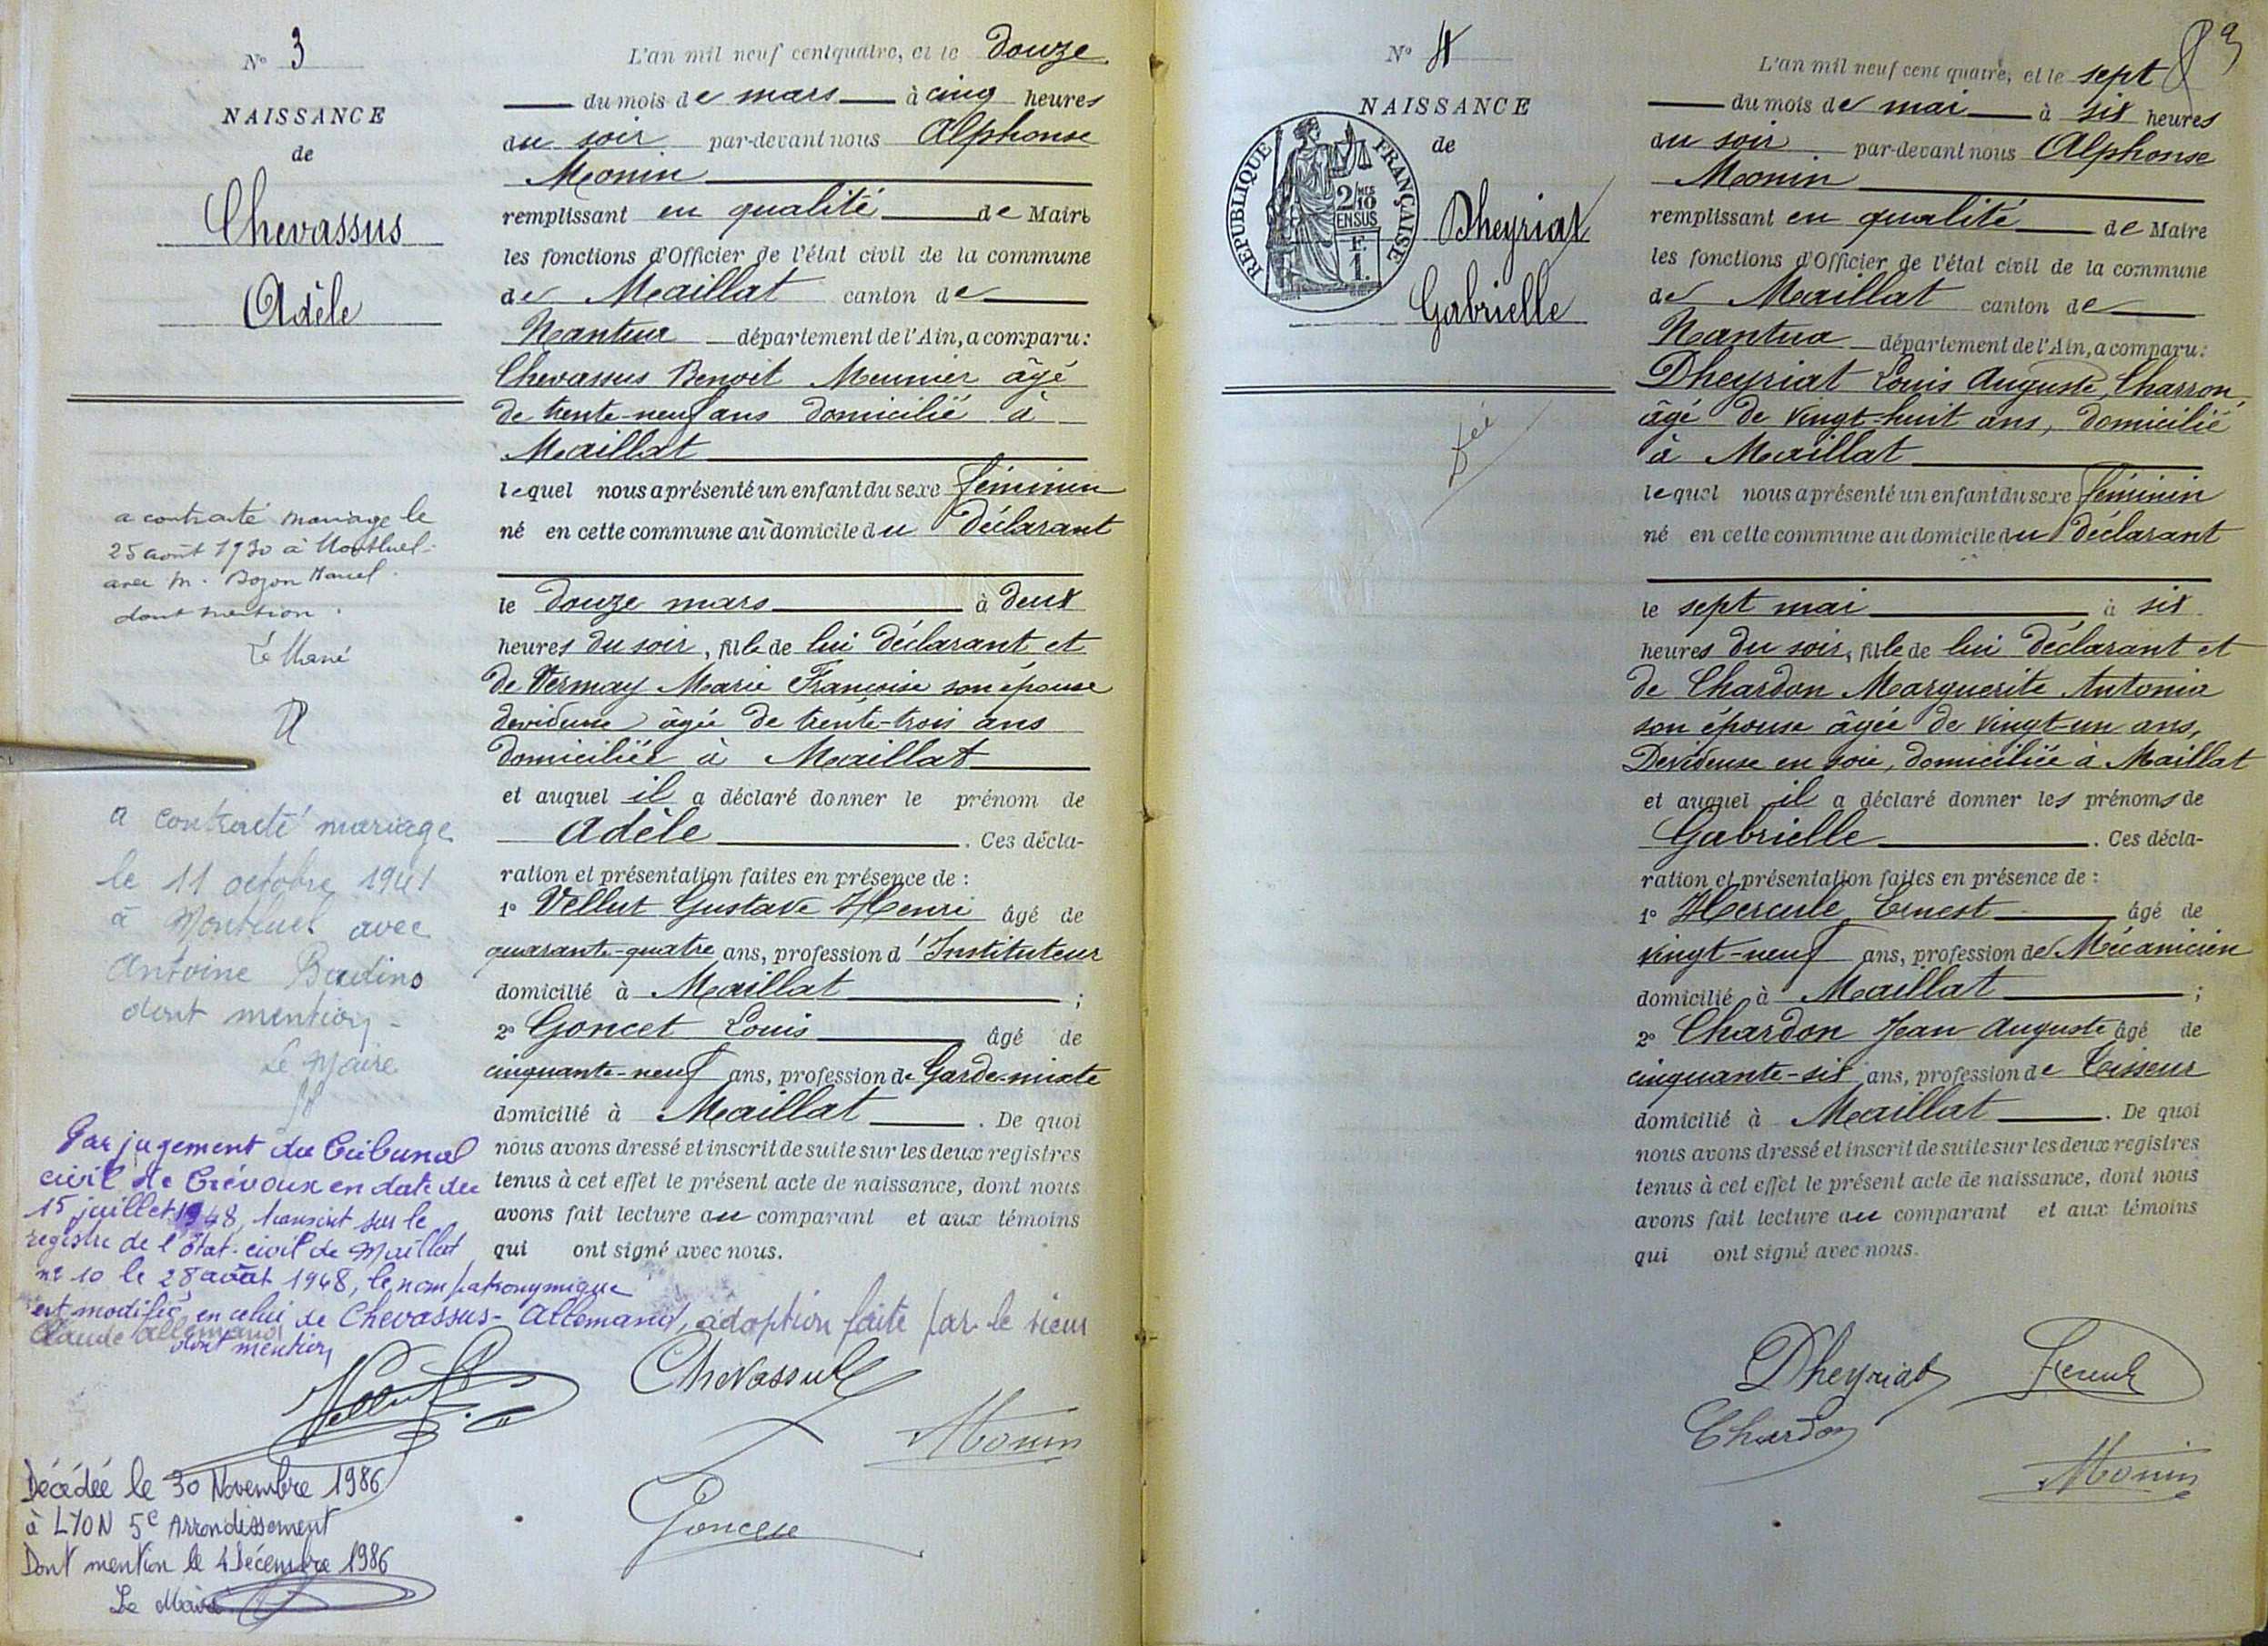 N° 3
NAISSANCE
de
Chevassus
Adèle
a contracté mariage le
25 août 1930 à Montluel
avec M. Bozon Marcel.
dont mention.
a contracté mariage
le 11 octobre 1941
à Montluel avec
Antoine Badino
dont mention -
Le Maire
Par jugement du Tribunal
civil de Trévoux en date du
15 juillet 1948, transcrit sur le
registre de l'état-civil de Maillat
n° 10 le 28 août 1948, le nom patronymique
est modifié en celui de Chevassus-Allemand, adoption faite par le sieur
Claude Allemand
dont mention
Décédée le 30 Novembre 1986
à LYON 5e Arrondissement
Dont mention le 4 Décembre 1986
Le Maire
L'an mil neuf cent quatre, et le douze
du mois de mars à cinq heures
du soir par-devant nous Alphonse
Monin
remplissant en qualité de Maire
les fonctions d'Officier de l'état civil de la commune
de Maillat canton de
Nantua département de l'Ain, a comparu:
Chevassus Benoit Meunier âgé
de trente-neuf ans domicilié à
Maillat
lequel nous a présenté un enfant du sexe féminin
né en cette commune au domicile du déclarant
le douze mars à deux
heures du soir, fille de lui déclarant et
de Vermay Marie Françoise son épouse
devideuse âgée de trente-trois ans
domiciliée à Maillat
et auquel il a déclaré donner le prénom de
Adèle. Ces décla-
ration et présentation faites en présence de :
1° Vellut Gustave Henri âgé de
quarante-quatre ans, profession d'Instituteur
domicilié à Maillat ;
2° Goncet Louis âgé de
cinquante-neuf ans, profession de Garde-mixte
domicilié à Maillat. De quoi
nous avons dressé et inscrit de suite sur les deux registres
tenus à cet effet le présent acte de naissance, dont nous
avons fait lecture au comparant et aux témoins
qui ont signé avec nous.
Vellut
Chevassus
Monin
Goncet
N° 4
NAISSANCE
de
RÉPUBLIQUE FRANÇAISE
2/10 MES
EN SUS
F.
1.
Dheyriat
Gabrielle
L'an mil neuf cent quatre, et le sept
du mois de mai à six heures
du soir par-devant nous Alphonse
Monin
remplissant en qualité de Maire
les fonctions d'Officier de l'état civil de la commune
de Maillat canton de
Nantua département de l'Ain, a comparu:
Dheyriat Louis Auguste, Charron,
âgé de vingt-huit ans, domicilié
à Maillat
lequel nous a présenté un enfant du sexe féminin
né en cette commune au domicile du déclarant
le sept mai à six
heures du soir, fille de lui déclarant et
de Chardon Marguerite Antonia
son épouse âgée de vingt-un ans,
Devideuse en soie, domiciliée à Maillat
et auquel il a déclaré donner les prénoms de
Gabrielle. Ces décla-
ration et présentation faites en présence de :
1° Hercule Ernest âgé de
vingt-neuf ans, profession de Mécanicien
domicilié à Maillat ;
2° Chardon Jean Auguste âgé de
cinquante-six ans, profession de Tisseur
domicilié à Maillat. De quoi
nous avons dressé et inscrit de suite sur les deux registres
tenus à cet effet le présent acte de naissance, dont nous
avons fait lecture au comparant et aux témoins
qui ont signé avec nous.
Dheyriat
Chardon
Monin